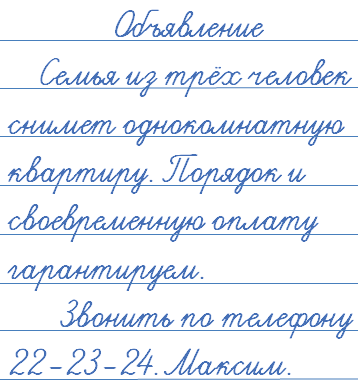 Объявление
Семья из трёх человек
снимет однокомнатную
квартиру. Порядок и
своевременную оплату
гарантируем.
Звонить по телефону
22-23-24. Максим.